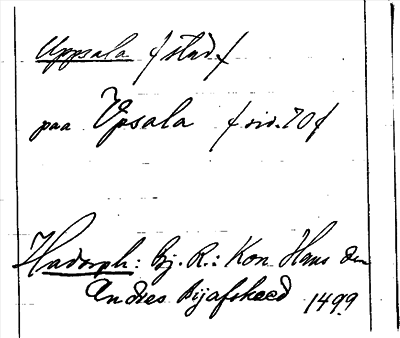 Uppsala / stad /
paa Vpsala / sid. 70 /
Hadorph: Bj. R.: Kon Hans den
Andres Bijafskeed 1499